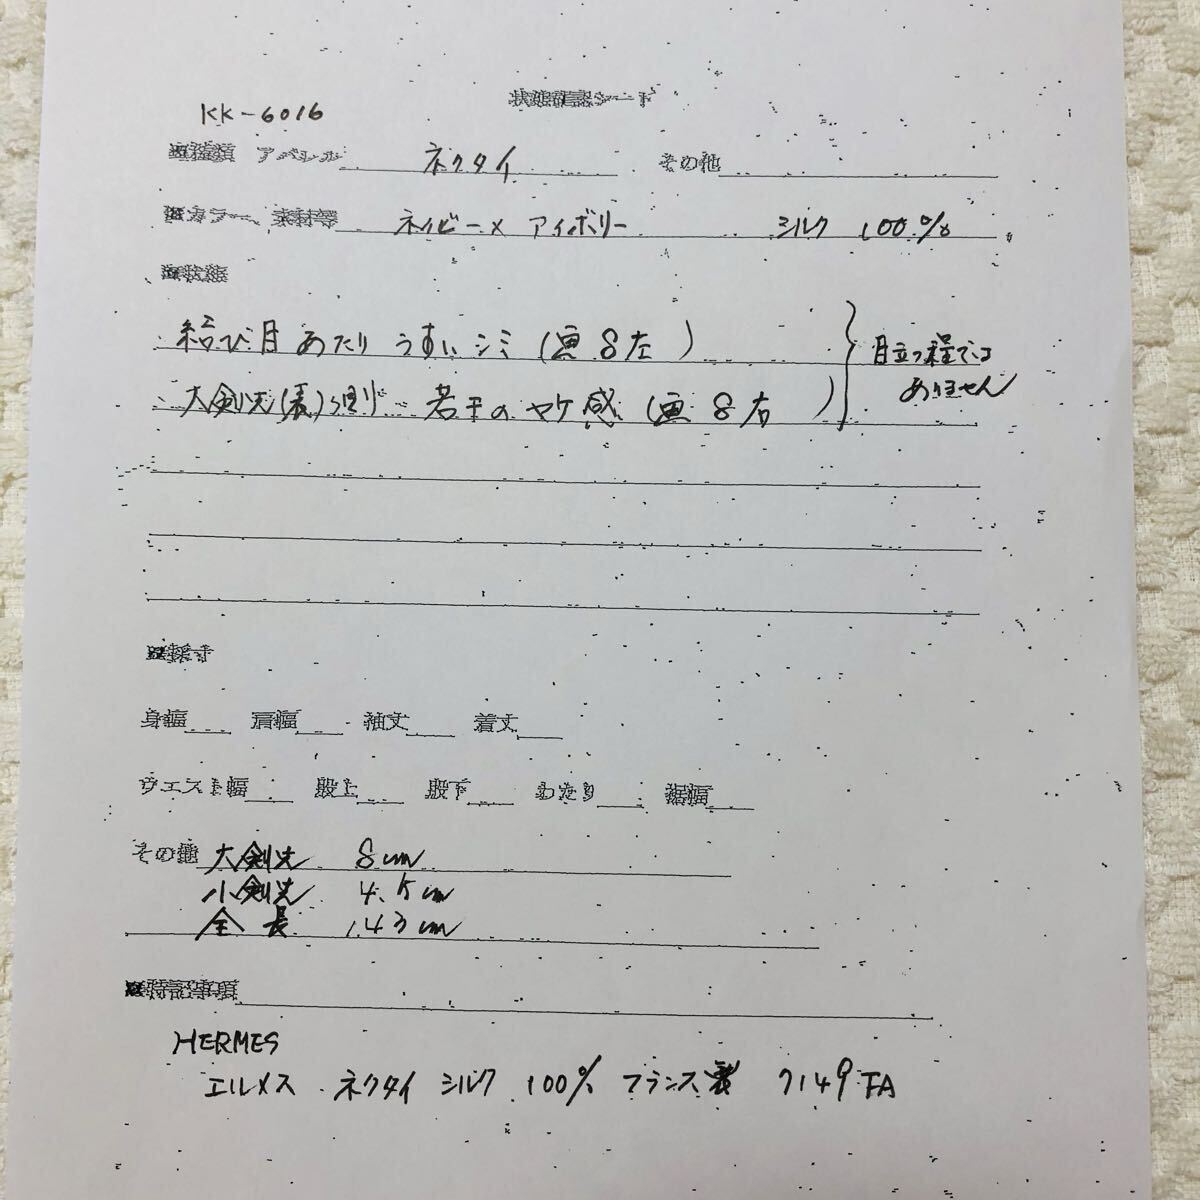 状態確認シート
KK-6016
■種類 アパレル ネクタイ その他
■カラー、素材等 ネイビー×アイボリー シルク 100%
■状態
結び目あたり うすいシミ (画8左 )
大剣先(表)周り 若干のヤケ感 (画8右 )
目立つ程では
ありません
■採寸
身幅 肩幅 袖丈 着丈
ウエスト幅 股上 股下 わたり 裾幅
その他 大剣先 8cm
小剣先 4.5cm
全長 143cm
■特記事項
HERMES
エルメス ネクタイ シルク 100% フランス製 7149 FA